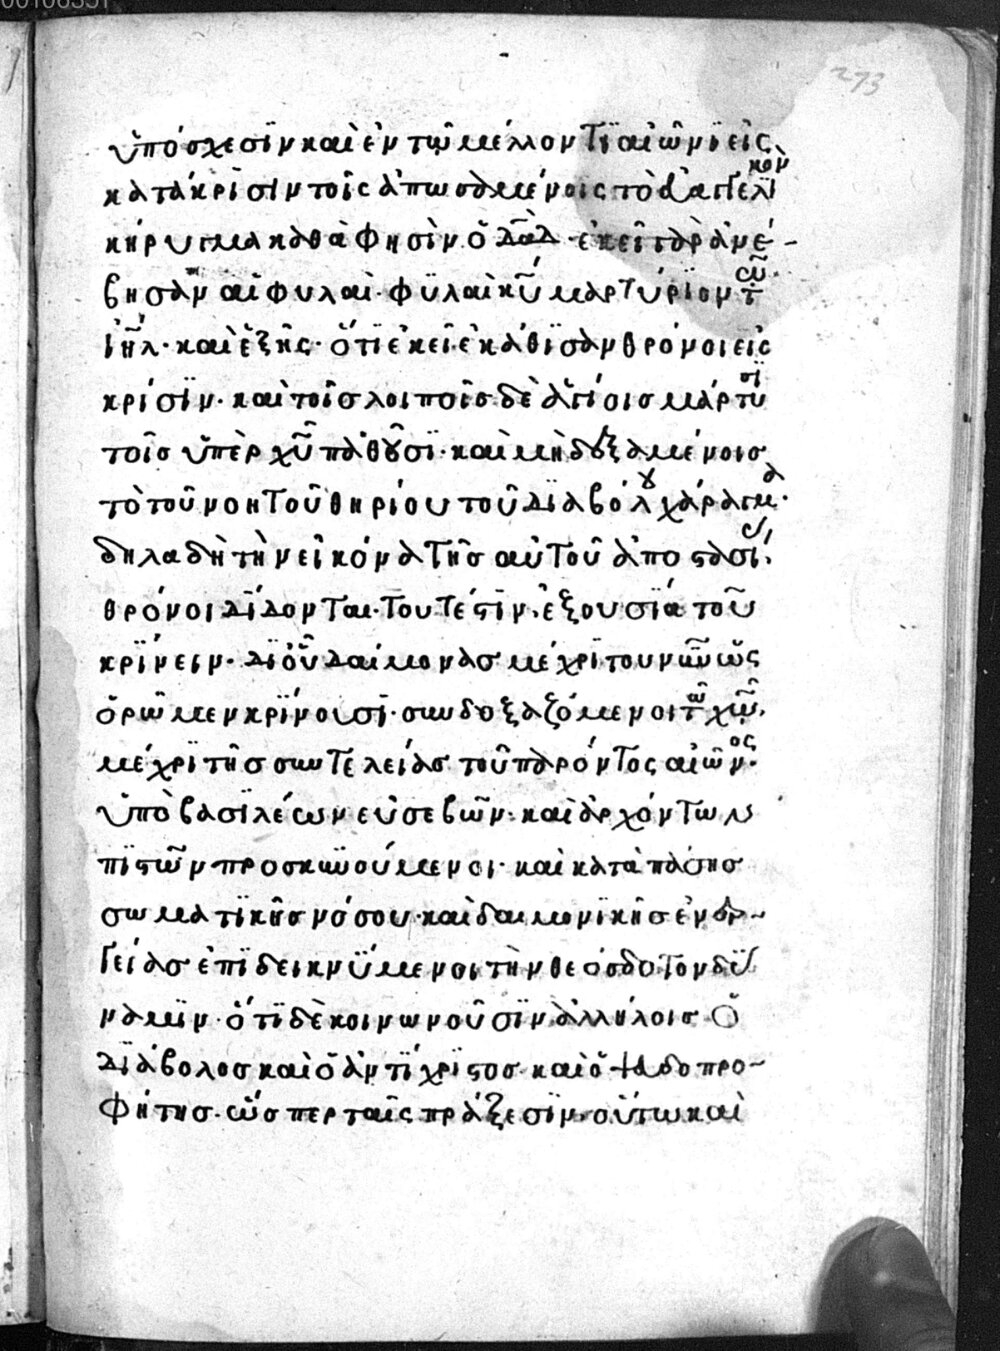 00106351
273
ὑπόσχεσϊν καὶ ἐν τῷ μέλλοντϊ αἰῶνϊ εἰς
κατάκρϊσϊν τοῖς ἀπωσαμένοις τὸ εὐαγγελϊκὸν
κήρυγμα καθά φησὶν ὁ δᾱδ · ἐκεῖ γὰρ ἀνέ-
βησαν αἱ φυλαὶ · φϋλαὶ κ̅υ̅ μαρτύρϊον τῶ
ἰη̅λ · καὶ ἑξῆς · ὅτϊ ἐκεῖ ἐκάθϊσαν θρόνοι εἰς
κρίσϊν · καὶ τοῖσ λοιποῖσ δὲ ἁγίοισ μάρτυσϊ
τοῖσ ὑπὲρ χ̅υ̅ παθοῦσϊ · καὶ μὴ δεξαμένοισ
τὸ τοῦ νοητοῦ θηρίου τοῦ δϊαβόλου χάραγμα ·
δηλαδὴ τὴν εἰκόνα τῆσ αὐτοῦ ἀποστασί ·
θρόνοι δΐδονται · τουτέστϊν · ἐξουσϊα τοῦ
κρΐνειν · δϊ οὗ δαίμονασ μέχρϊ τοῦ νῦν ὡς
ὁρῶμεν κρΐνουσϊ · συνδοξαζόμενοι τῶ χ̅ω̅ ·
μέχρϊ τῆσ συντελείασ τοῦ παρόντος αἰῶνος ·
ὑπὸ βασϊλέων εὐσεβῶν · καὶ ἀρχόντων
πϊστῶν προσκυνούμενοι · καὶ κατὰ πάσησ
σωματϊκῆσ νόσου · καὶ δαιμονϊκῆσ ἐνερ-
γείασ ἐπϊδεικνΰμενοι τὴν θεόσδοτον δϋ
ναμϊν · ὅτϊ δὲ κοινωνοῦσϊν ἀλλήλοισ ὁ
δϊάβολοσ καὶ ὁ ἀντΐχρϊστοσ · καὶ ὁ ψευδοπρο-
φήτησ · ὥσπερ ταῖς πράξεσϊν · οὕτω καὶ